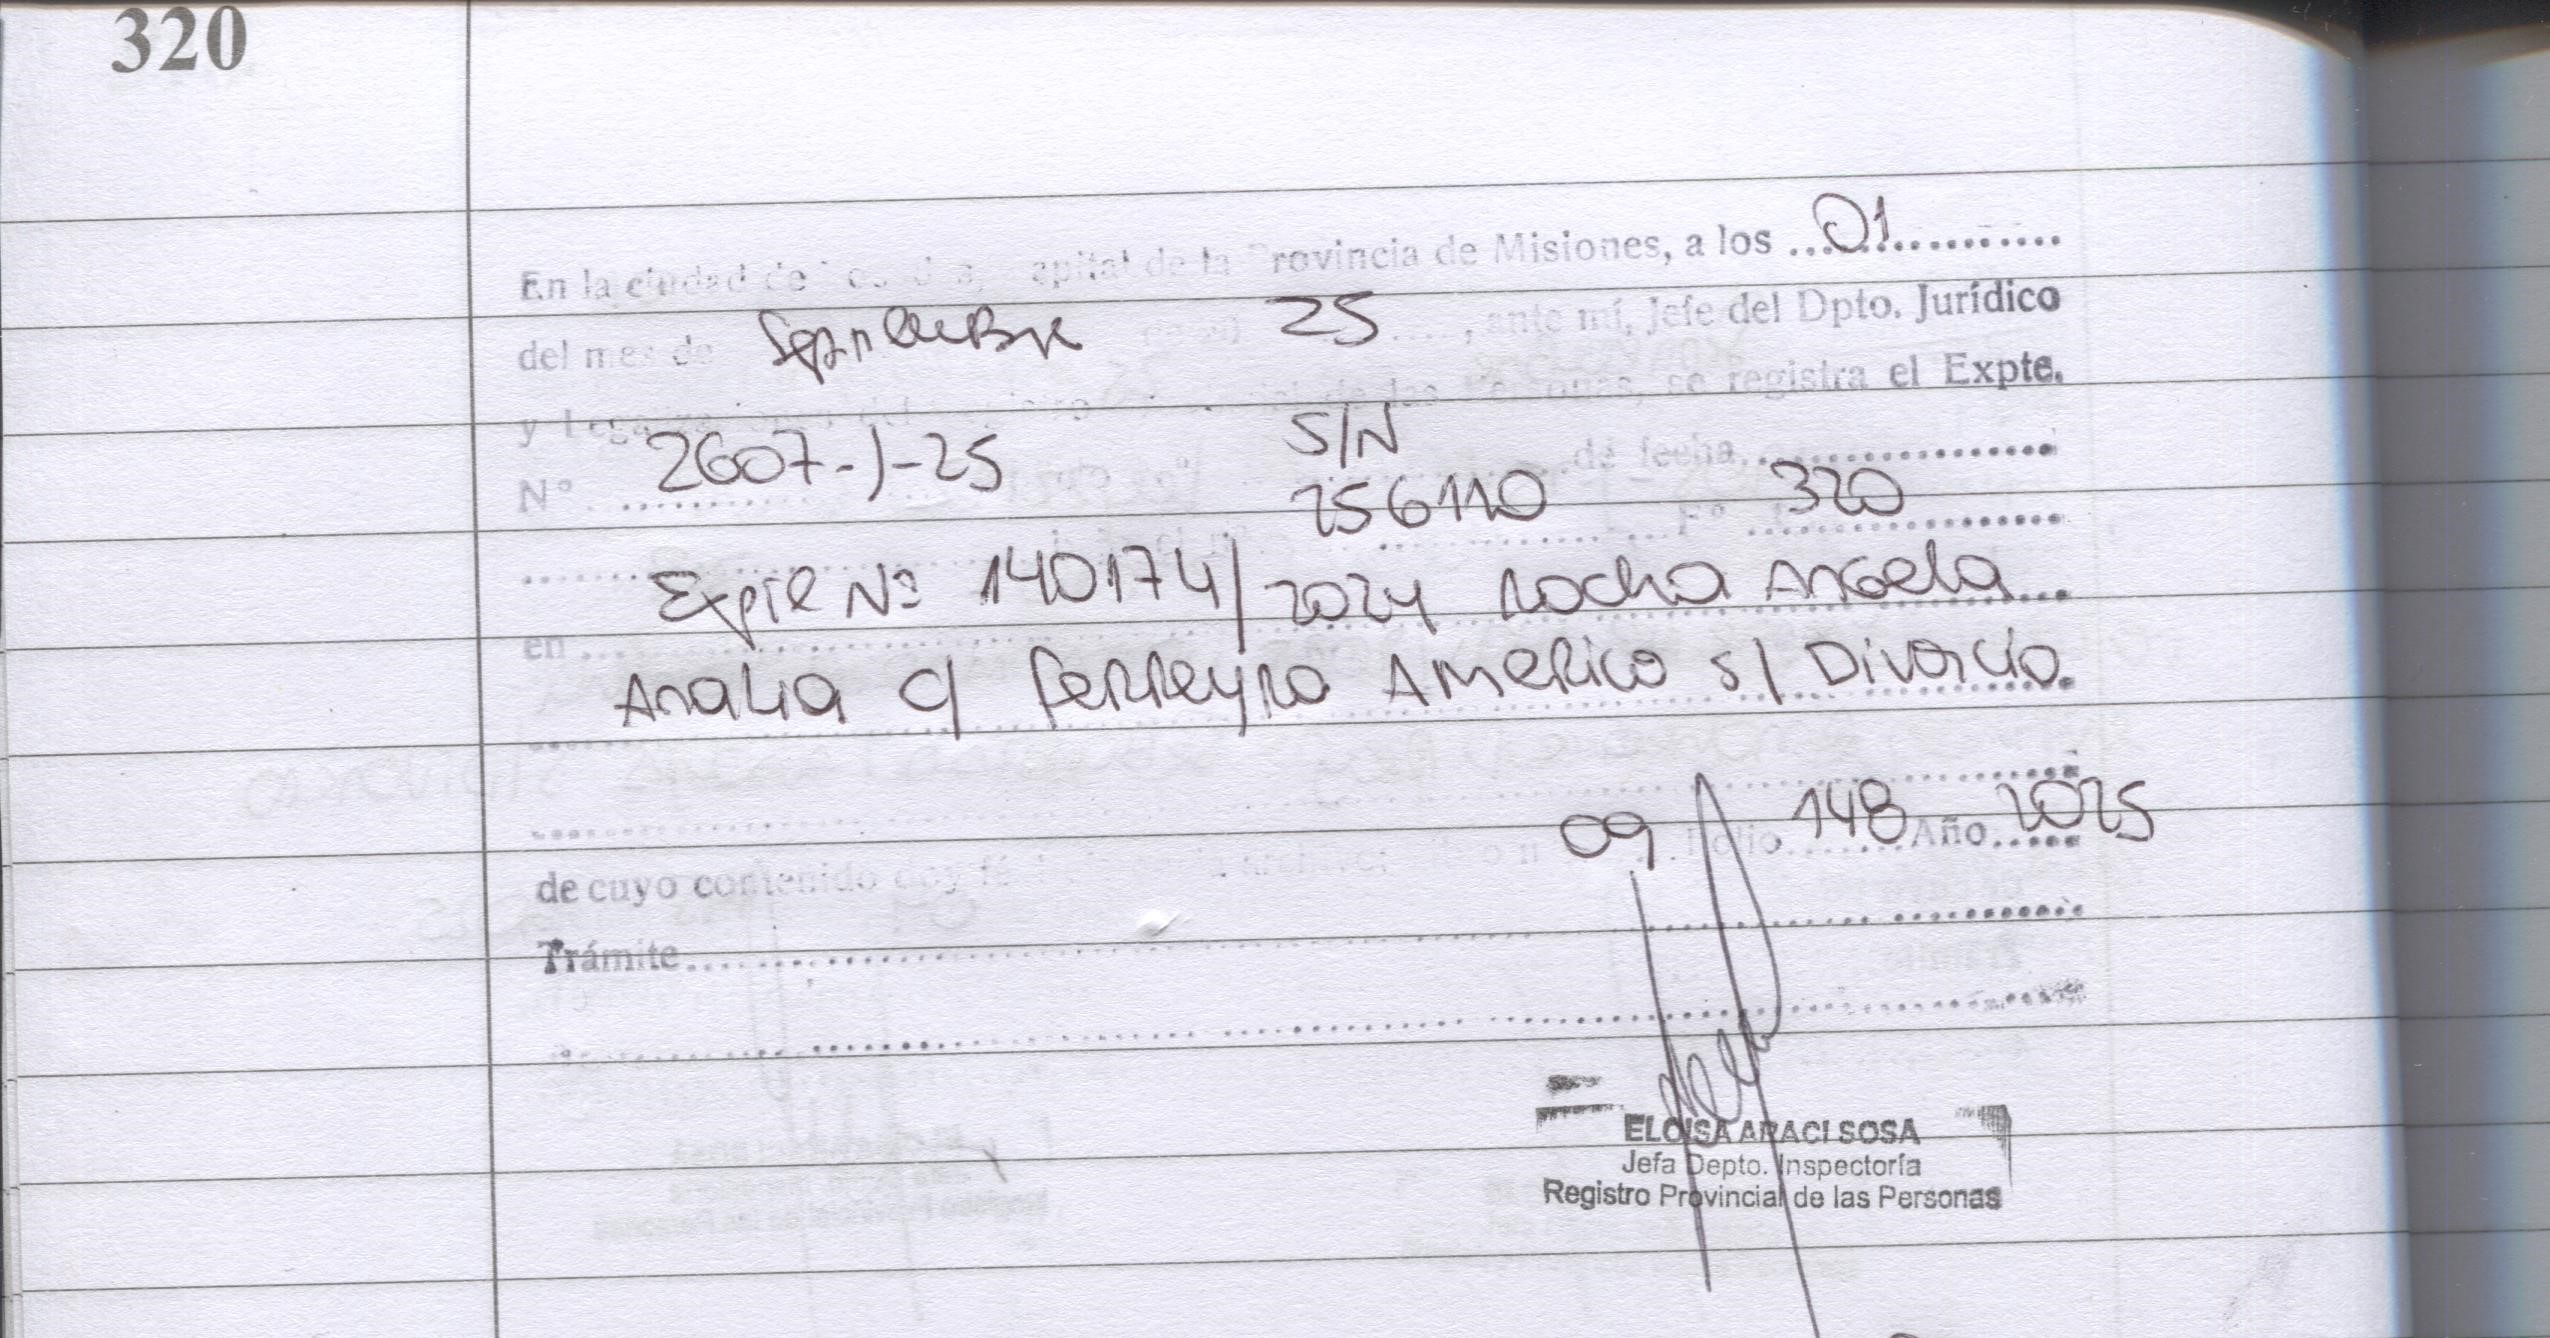 320
En la ciudad de Posadas, capital de la Provincia de Misiones, a los ...01............
del mes de Septiembre 25 ...., ante mí, Jefe del Dpto. Jurídico
y se registra el Expte.
Nº 2607-J-25 S/N de fecha,..................
256110 Fº 320
Expte Nº 140174/2024 Rocha Angela
en
Analia c/ Ferreyra Americo s/ Divorcio.
de cuyo contenido doy fé 09 Folio 148 Año 2025
Trámite
ELOISA ARACI SOSA
Jefa Depto. Inspectoría
Registro Provincial de las Personas